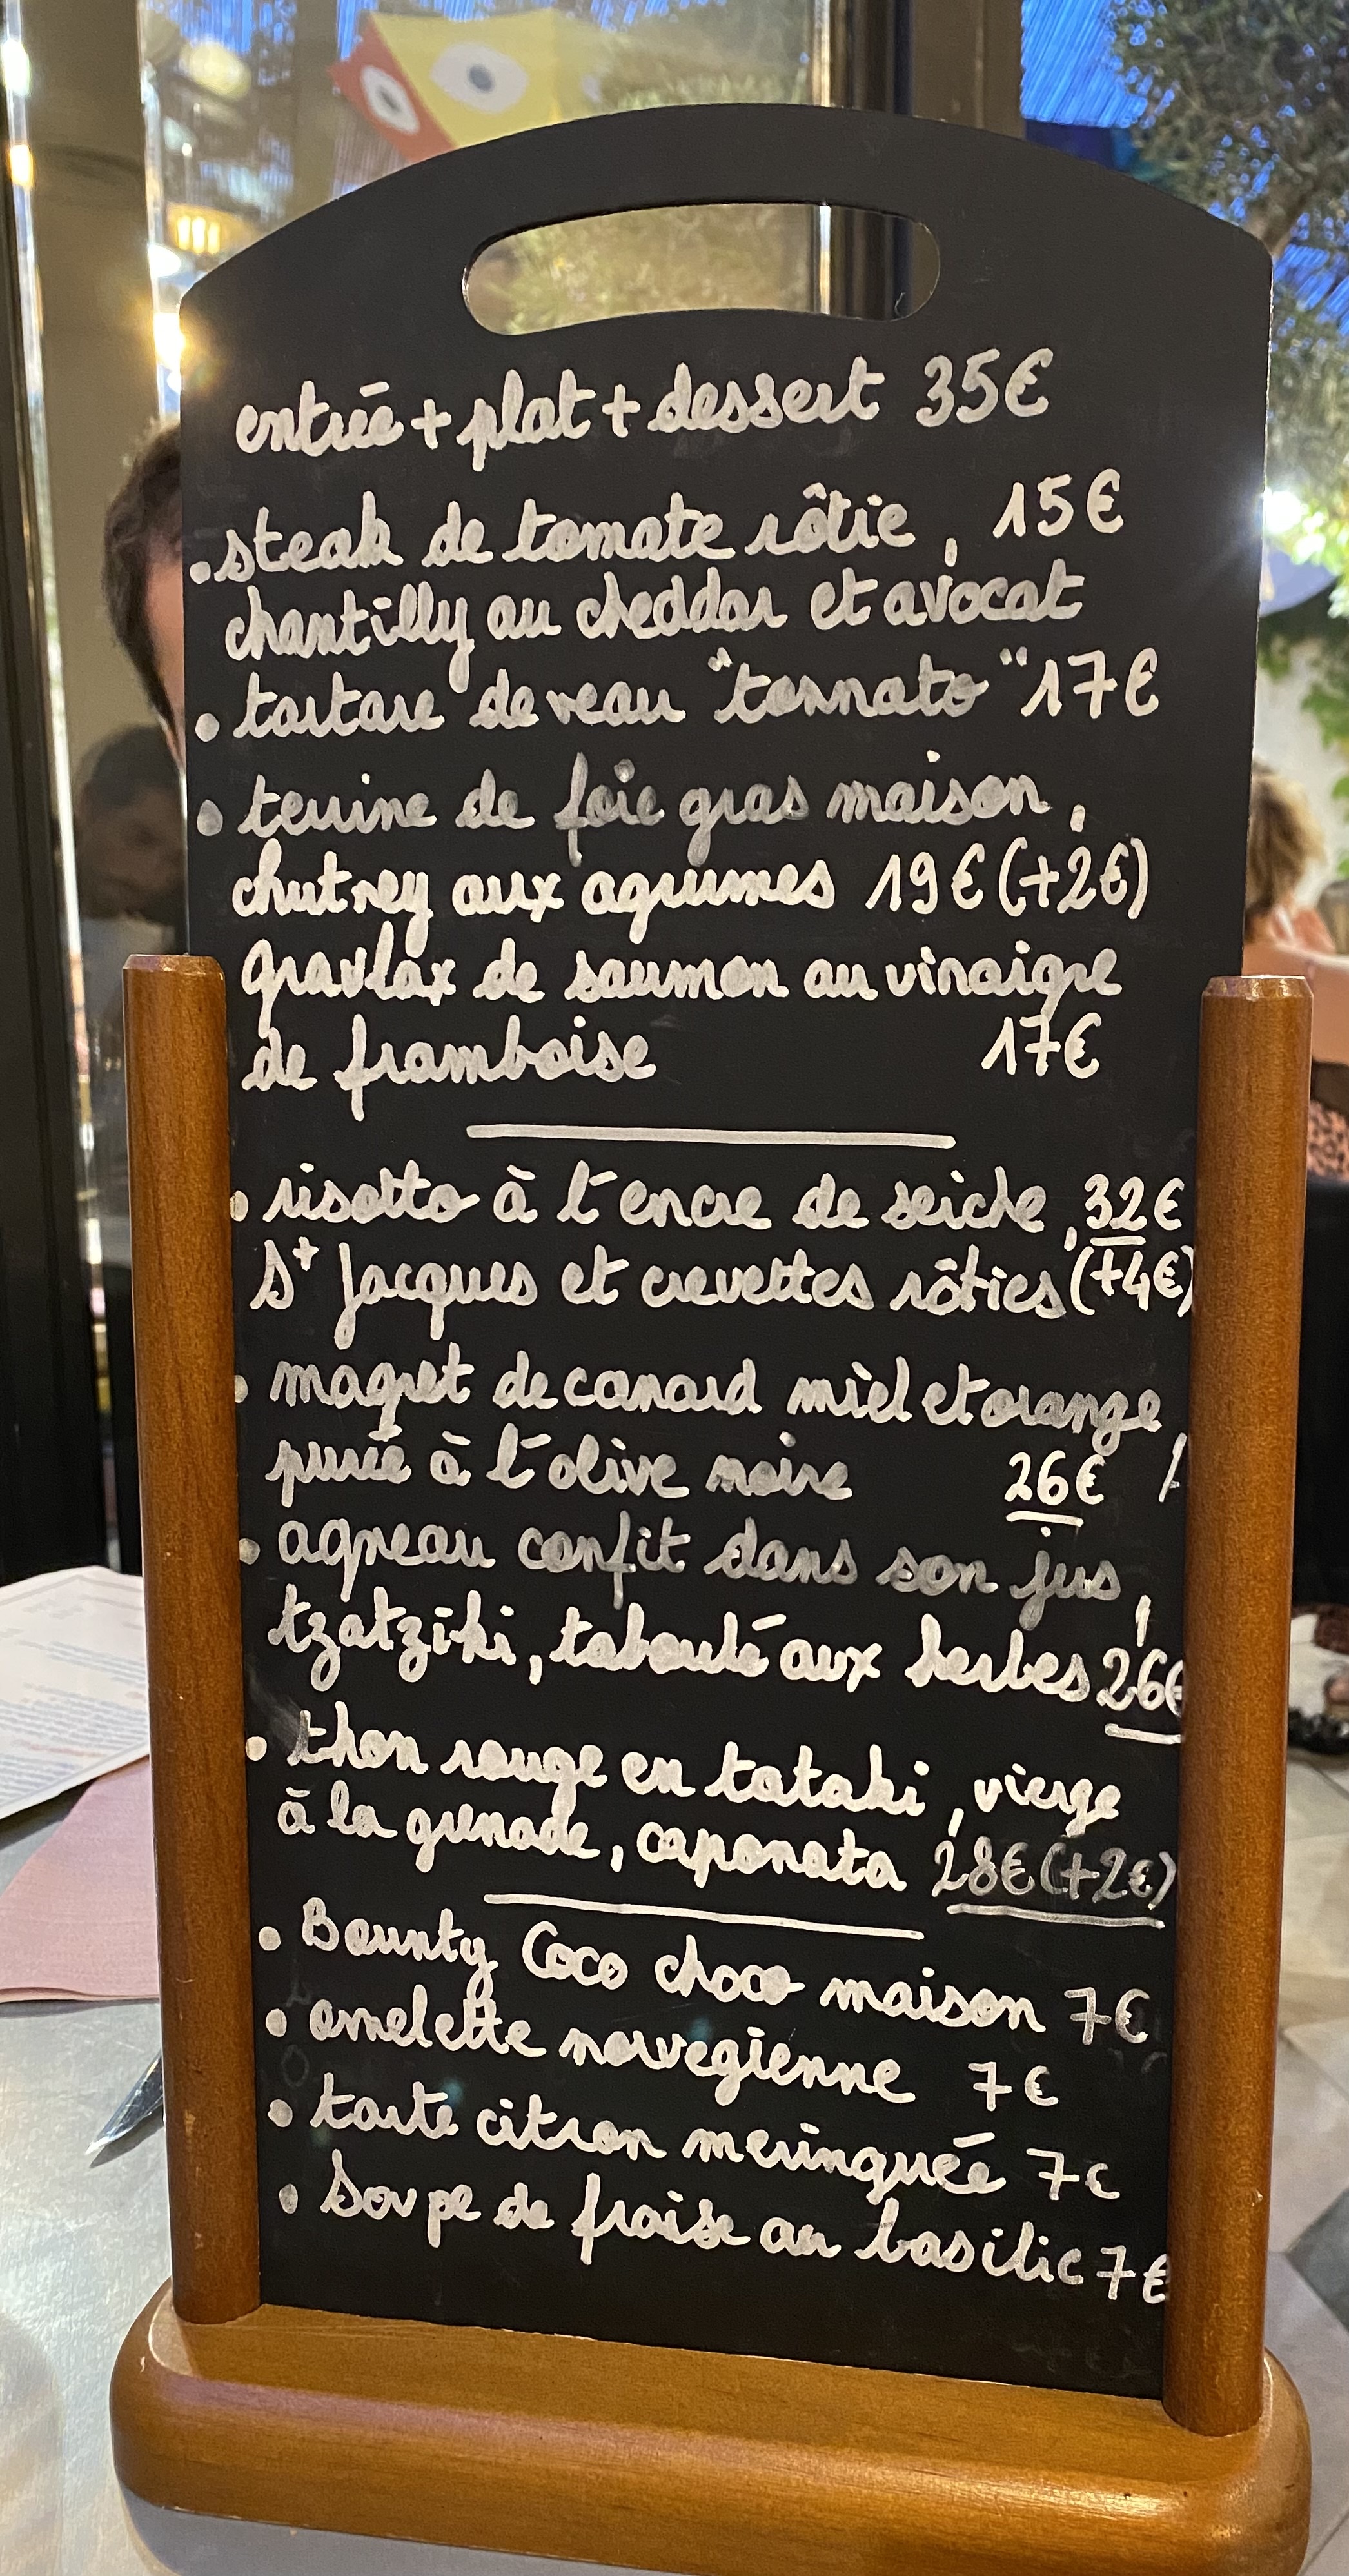 entrée + plat + dessert 35€
• steak de tomate rôtie, 15€
chantilly au cheddar et avocat
• tartare de veau "tonnato" 17€
• terrine de foie gras maison,
chutney aux agrumes 19€ (+2€)
gravlax de saumon au vinaigre
de framboise 17€
• risotto à l'encre de seiche, 32€
St Jacques et crevettes rôties (+4€)
• magret de canard miel et orange,
purée à l'olive noire 26€
• agneau confit dans son jus,
tzatziki, taboulé aux herbes 26€
• thon rouge en tataki, vierge
à la grenade, caponata 28€ (+2€)
• Bounty Coco choco maison 7€
• omelette norvegienne 7€
• tarte citron meringuée 7€
• Soupe de fraise au basilic 7€